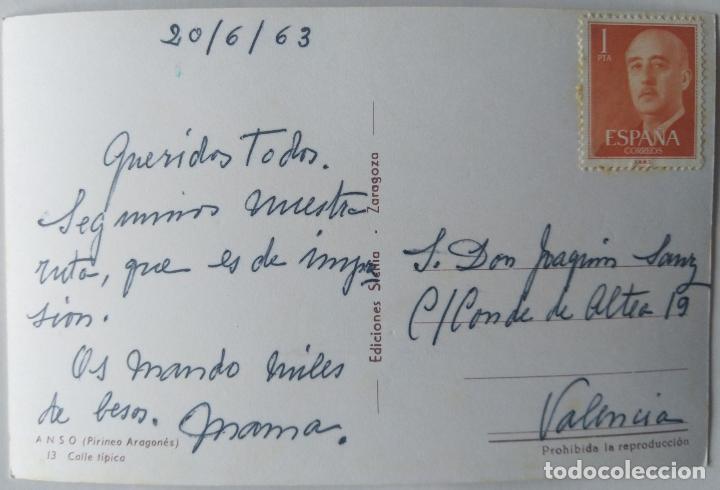 20/6/63
Queridos Todos.
Seguimos nuestra
ruta, que es de impre
sion.
Os mando miles
de besos. Mama.
ANSO (Pirineo Aragonés)
13 Calle típica
Ediciones Sicilia · Zaragoza
1
PTA
ESPAÑA
CORREOS
S. Don Joaquin Sanz
C/Conde de Altea 19
Valencia
Prohibida la reproducción
todocoleccion